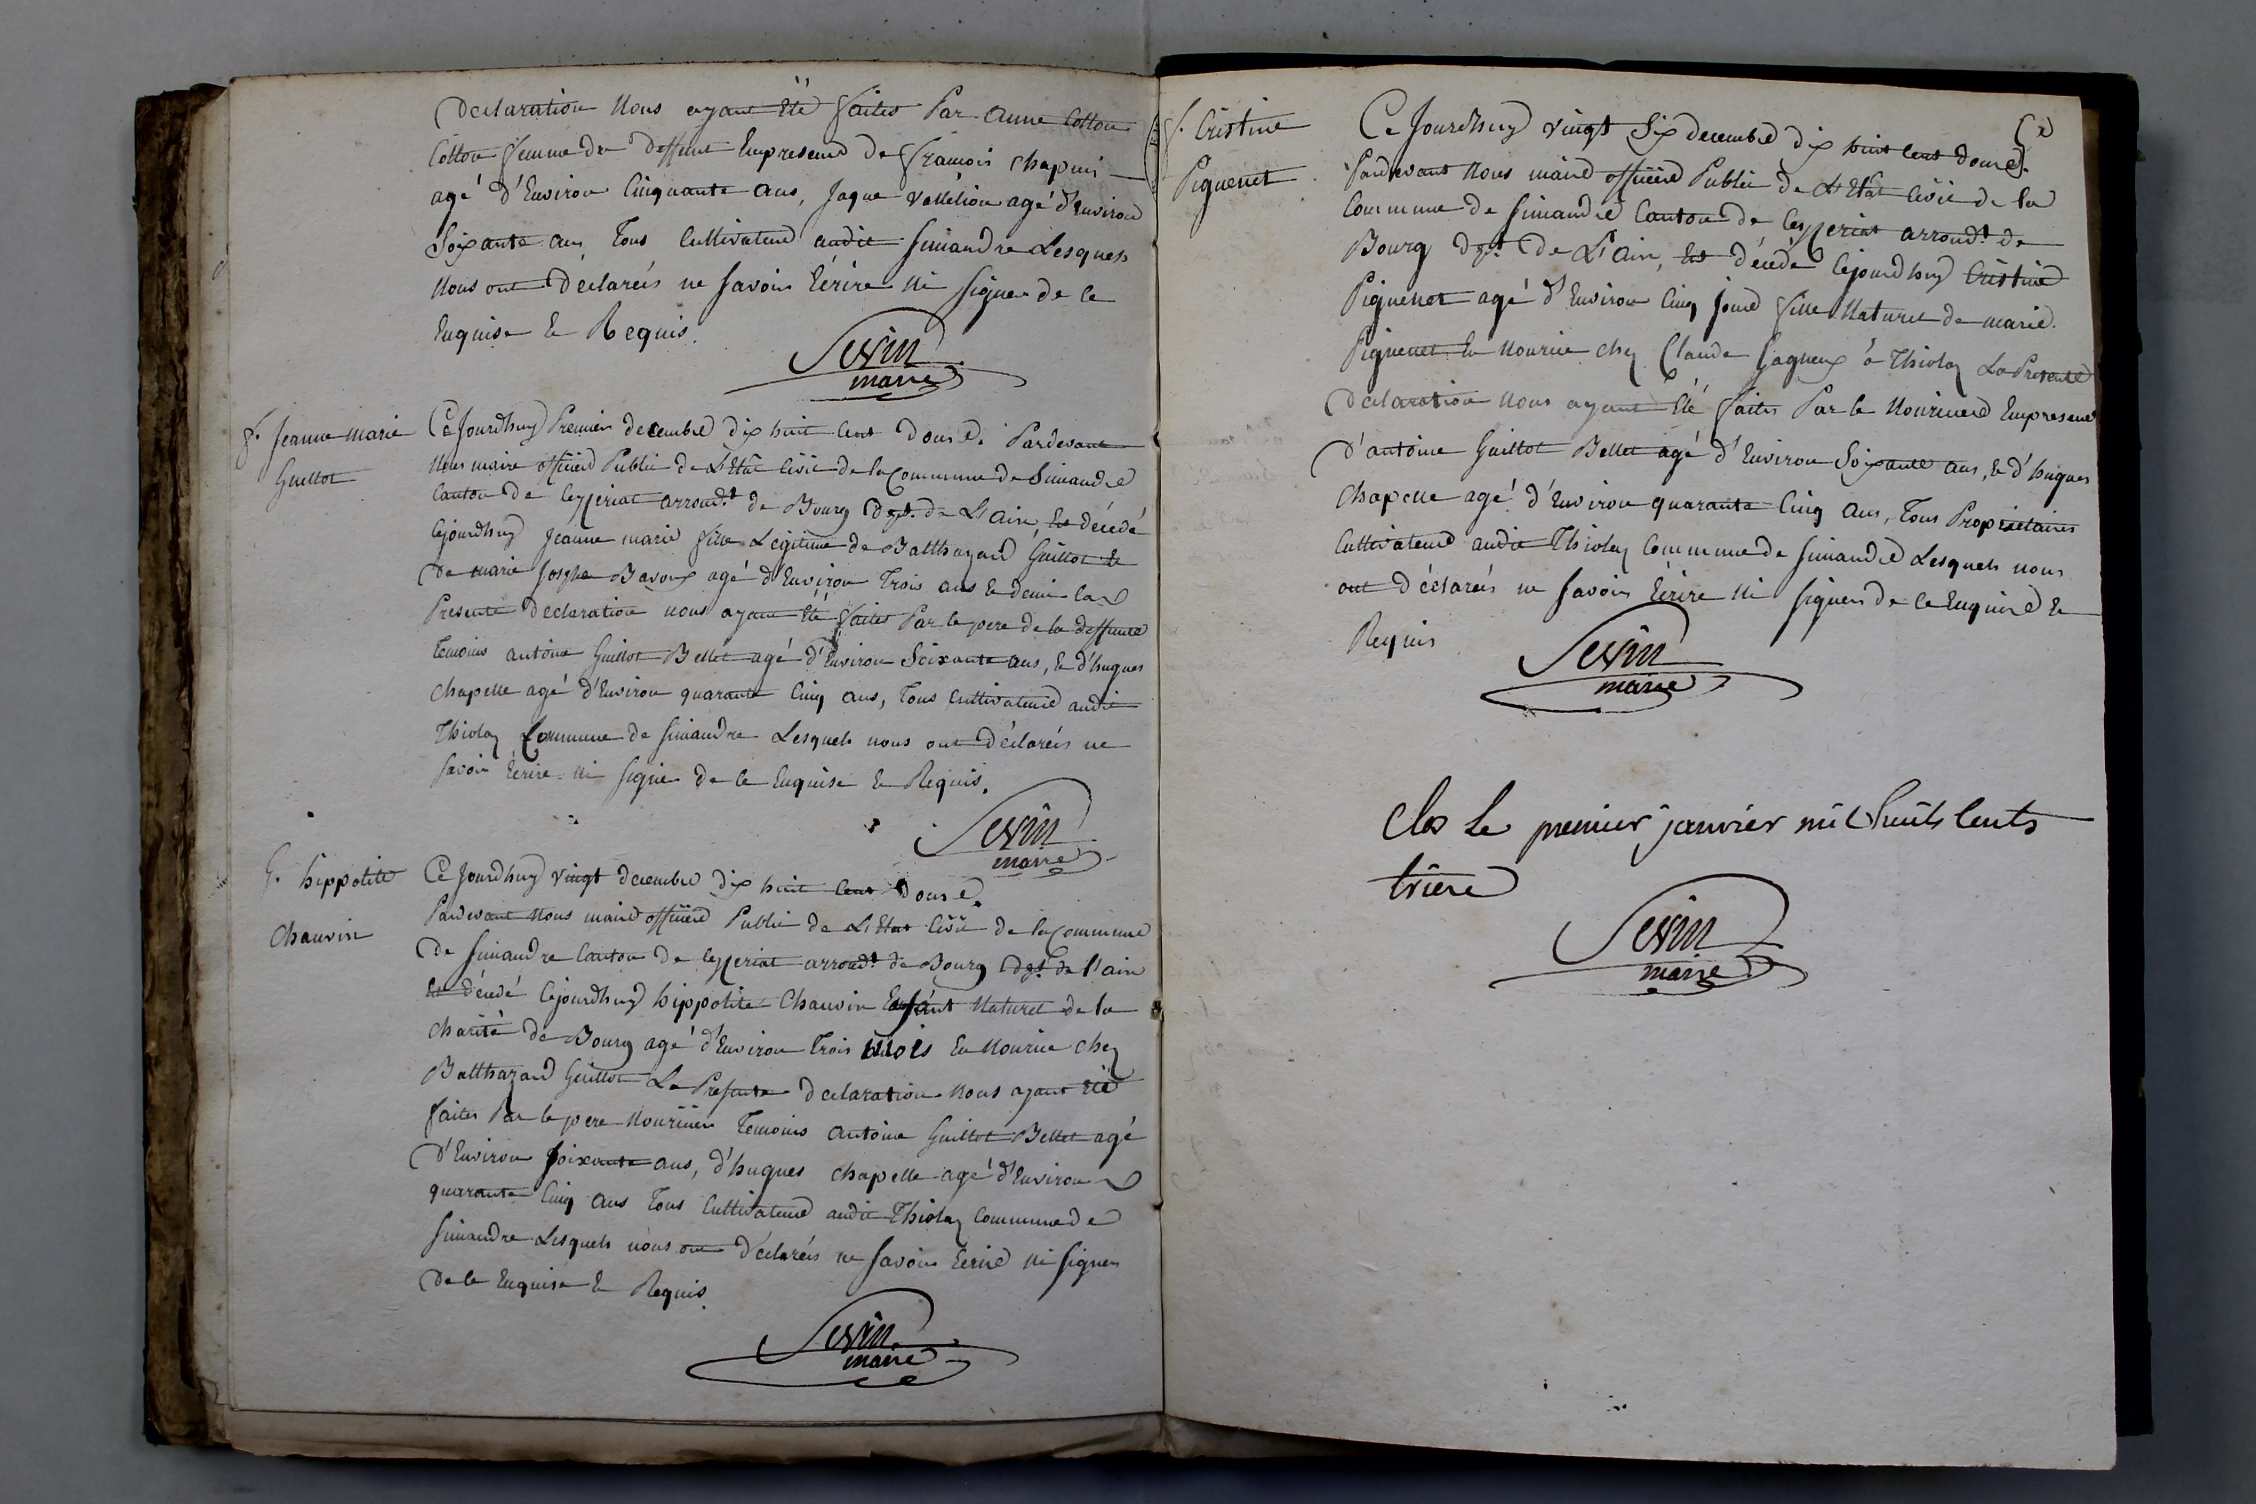 Declaration Nous ayant Eté faites Par Anne Cotton
Cotton femme du deffunt En presence de francois chapuis
agé d'Environ Cinquante ans, Jaque agé d'Environ
Soixante ans Tous Cultivateurs audit Simandre Lesquels
Nous ont Déclarés ne Savoir Ecrire ni Signer de ce
Enquise & Requis.
Sevin
maire
f. Jeanne Marie
Guillot
Ce Jourdhuy Premier decembre dix huit Cent Douse. Pardevant
Nous maire officier Public de L'Etat Civil de la Commune de Simandre
Canton de Ceyzeriat arrondt de Bourg Dept. de L'Ain, Est décedé
Cejourdhuy Jeanne marie fille Légitime de Balthazard Guillot &
De marie Josphe Bavoux agé d'Environ Trois ans & demi la
Presente declaration nous ayant Eté faites Par le pere de la deffunte
Temoins antoine Guillot Bellet agé d'Environ Soixante ans, & d'hugues
Chapelle agé d'Environ quarante Cinq ans, Tous Cultivateurs audit
Thiolay Commune de Simandre Lesquels nous ont Déclarés ne
Savoir Ecrire ni Signer de ce Enquise & Requis.
Sevin
maire
G. hippolite
Chauvin
Ce Jourdhuy vingt decembre dix huit Cent Douse.
Pardevant Nous maire officier Public de L'Etat Civil de la Commune
De Simandre Canton de Ceyzeriat arrondt de Bourg Dept. de l'ain
Est décedé Cejourdhuy hippolite Chauvin Enfant Naturel de la
Charité de Bourg agé d'Environ Trois Mois En Nourrice chez
Balthazard Guillot La Presente declaration Nous ayant Eté
faites Par le pere Nouricier Temoins Antoine Guillot Bellet agé
D'Environ Soixante ans, d'hugues chapelle agé d'Environ
quarante Cinq ans Tous Cultivateurs audit Thiolay Commune de
Simandre Lesquels nous ont Déclarés ne Savoir Ecrire ni Signer
De ce Enquise & Requis.
Sevin
maire
f. Cristine
Piguenet
Ce Jourdhuy vingt Six decembre dix huit Cent Douse.
Pardevant Nous maire officier Public de L'Etat Civil de la
Commune de Simandre Canton de Ceyzeriat arrondt. de
Bourg Dept. De L'Ain, Est décédé Cejourdhuy Cristine
Piguenet agé d'Environ Cinq jours fille Naturel de marie
Piguenet En Nourrice chez Claude Gagneux à Thiolay La Presente
Declaration Nous ayant Eté faites Par le Nouricier En presence
D'antoine Guillot Bellet agé d'Environ Soixante ans, & d'hugues
Chapelle agé d'Environ quarante Cinq ans, Tous Proprietaires
Cultivateurs audit Thiolay Commune de Simandre Lesquels nous
ont Déclarés ne Savoir Ecrire ni Signer de ce Enquise &
Requis
Sevin
maire
Clos Le premier janvier mil huit Cents
trieze
Sevin
maire